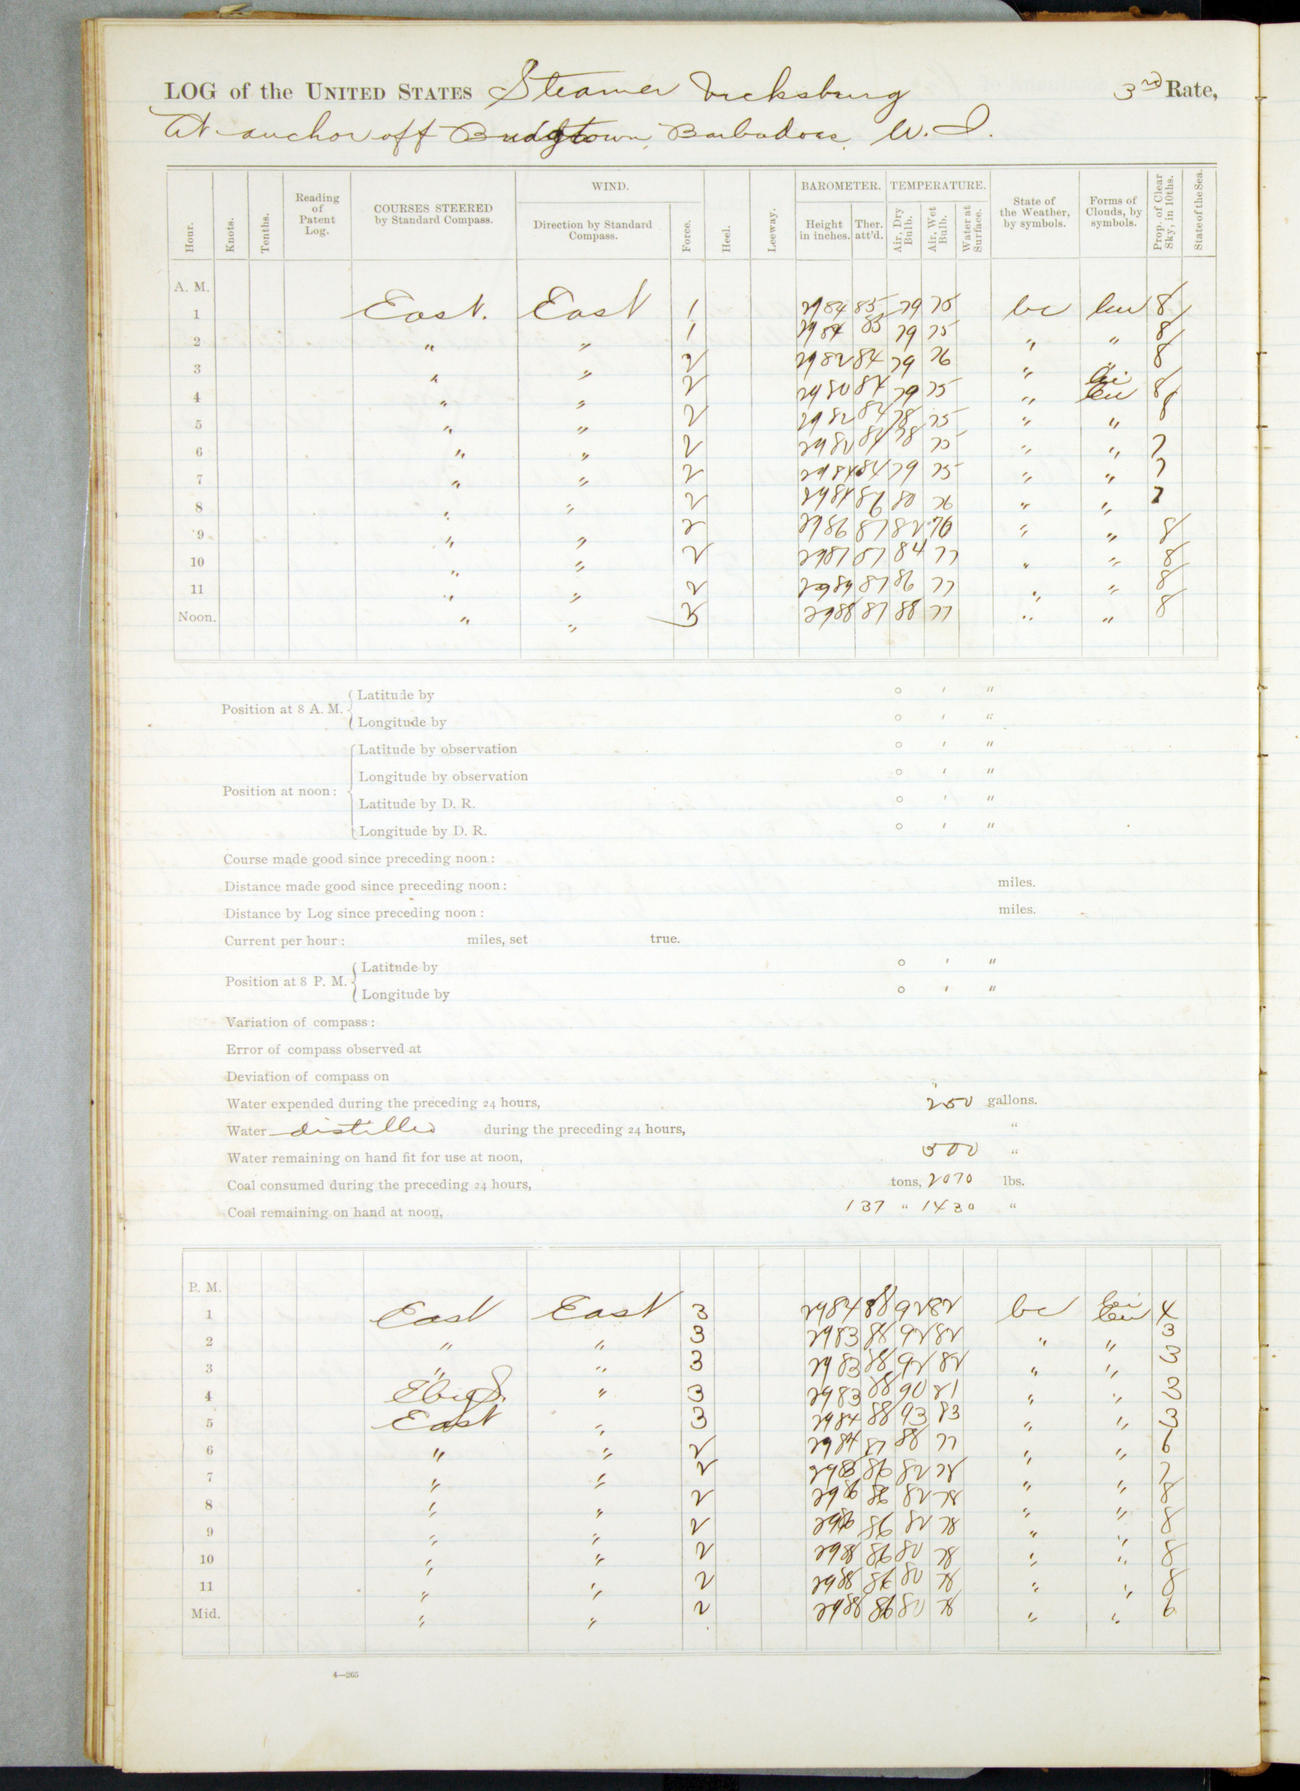 LOG of the UNITED STATES Steamer Vicksburg 3rd Rate,
At anchor off Bridgetown, Barbadoes, W. I.
Hour. Knots. Tenths. Reading of Patent Log. COURSES STEERED by Standard Compass. WIND. Direction by Standard Compass. Force. Heel. Leeway. BAROMETER. Height in inches. Ther. att'd. TEMPERATURE. Air, Dry Bulb. Air, Wet Bulb. Water at Surface. State of the Weather, by symbols. Forms of Clouds, by symbols. Prop. of Clear Sky, in 10ths. State of the Sea.
A. M.
1 East. East 1 2984 85 79 75 bc cu 8
2 " " 1 2984 85 79 75 " " 8
3 " " 2 2982 84 79 76 " " 8
4 " " 2 2980 84 79 75 " Ci Cu 8
5 " " 2 2982 84 78 75 " " 8
6 " " 2 2982 84 78 75 " " 7
7 " " 2 2984 84 79 75 " " 7
8 " " 2 2984 86 80 76 " " 7
9 " " 2 2986 87 82 76 " " 8
10 " " 2 2987 87 84 77 " " 8
11 " " 2 2989 87 86 77 " " 8
Noon. " " 3 2988 87 88 77 " " 8
Position at 8 A. M. Latitude by ° ' "
Longitude by ° ' "
Position at noon: Latitude by observation ° ' "
Longitude by observation ° ' "
Latitude by D. R. ° ' "
Longitude by D. R. ° ' "
Course made good since preceding noon:
Distance made good since preceding noon: miles.
Distance by Log since preceding noon: miles.
Current per hour: miles, set true.
Position at 8 P. M. Latitude by ° ' "
Longitude by ° ' "
Variation of compass:
Error of compass observed at
Deviation of compass on
Water expended during the preceding 24 hours, 250 gallons.
Water distilled during the preceding 24 hours, "
Water remaining on hand fit for use at noon, 500 "
Coal consumed during the preceding 24 hours, tons, 2070 lbs.
Coal remaining on hand at noon, 137 " 1430 "
P. M.
1 East East 3 2984 88 92 82 bc Ci Cu 4
2 " " 3 2983 88 92 82 " " 3
3 " " 3 2983 88 92 82 " " 3
4 EbyS. " 3 2983 88 90 81 " " 3
5 East " 3 2984 88 93 83 " " 3
6 " " 2 2984 87 88 77 " " 6
7 " " 2 2985 86 82 78 " " 7
8 " " 2 2986 86 82 78 " " 8
9 " " 2 2986 86 82 78 " " 8
10 " " 2 2988 86 80 78 " " 8
11 " " 2 2988 86 80 78 " " 8
Mid. " " 2 2988 86 80 78 " " 6
4—265